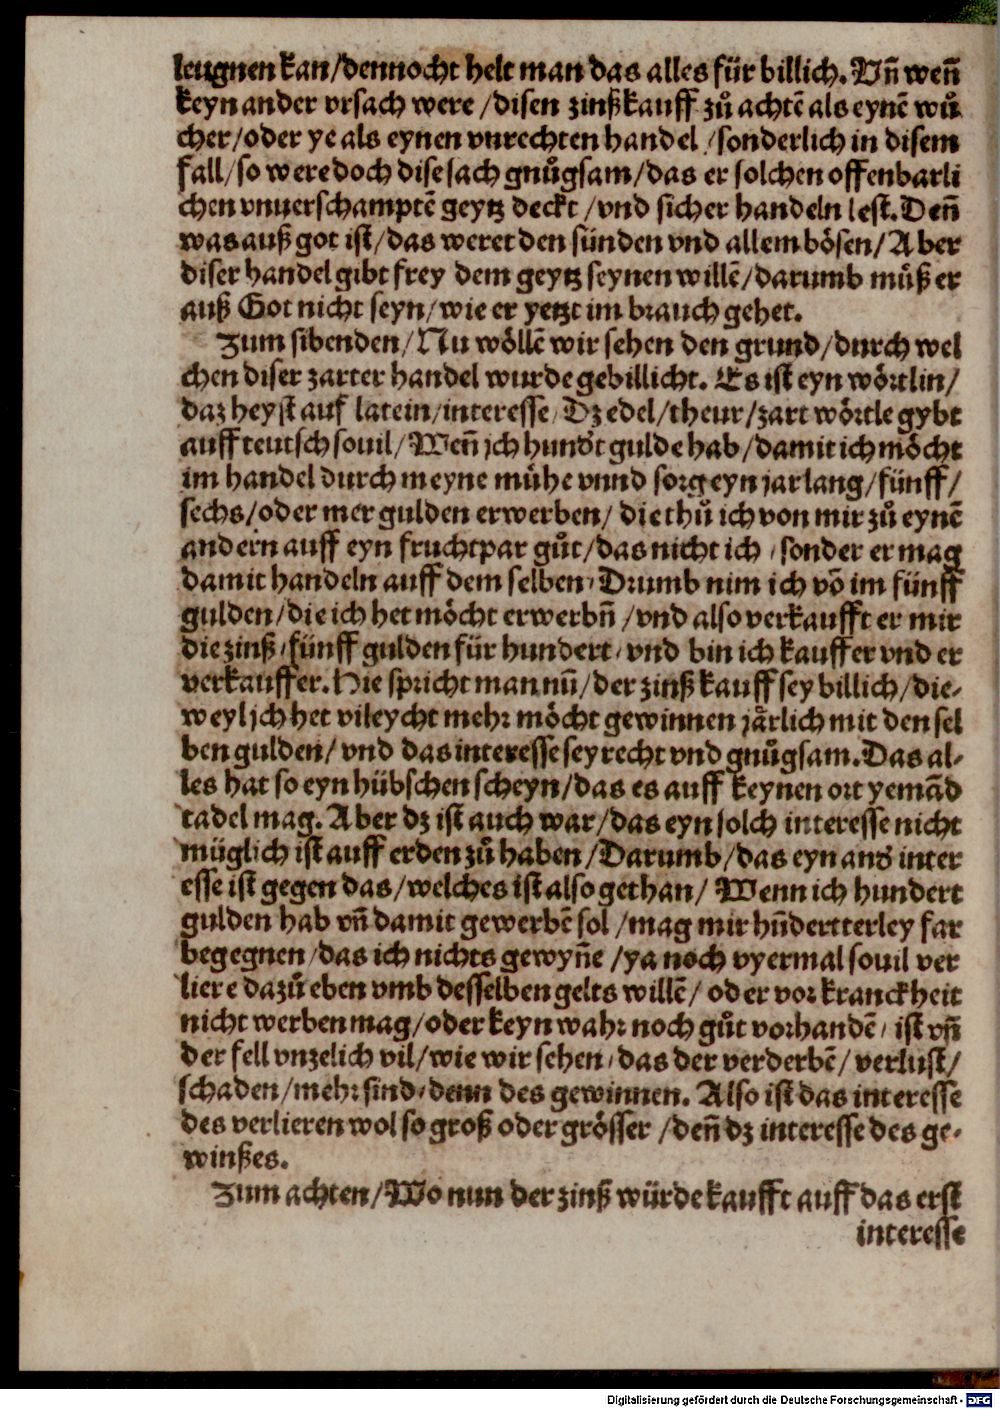 leugnen kan/dennocht helt man das alles für billich. Vñ weñ
keyn ander vrsach were/disen zinßkauff zů achtē als eynē wů
cher/oder ye als eynen vnrechten handel/sonderlich in disem
fall/so were doch dise sach gnůgsam/das er solchen offenbarli
chen vnuerschamptē geytz deckt/vnd sicher handeln lest. Deñ
was auß got ist/das weret den sünden vnd allem bösen/Aber
diser handel gibt frey dem geytz seynen willē/darumb můß er
auß Got nicht seyn/wie er yetzt im brauch gehet.
Zum sibenden/Nu wöllē wir sehen den grund/durch wel
chen diser zarter handel wurde gebillicht. Es ist eyn wörtlin/
daz heyst auf latein/interesse/Dz edel/theur/zart wörtle gybt
auff teutsch souil/Weñ jch hundt gulde hab/damit ich möcht
im handel durch meyne mühe vnnd sorg eyn jar lang/fünff/
sechs/oder mer gulden erwerben/die thů ich von mir zů eynē
andern auff eyn fruchtpar gůt/das nicht ich/sonder er mag
damit handeln auff dem selben/Drumb nim ich vō im fünff
gulden/die ich het möcht erwerbñ/vnd also verkaufft er mir
die zinß/fünff gulden für hundert/vnd bin ich kauffer vnd er
verkauffer. Hie spricht man nū/der zinß kauff sey billich/die-
weyl jch het vileycht mehr möcht gewinnen järlich mit den sel
ben gulden/vnd das interesse sey recht vnd gnůgsam. Das al-
les hat so eyn hübschen scheyn/das es auff keynen ort yemād
tadel mag. Aber dz ist auch war/das eyn solch interesse nicht
müglich ist auff erden zů haben/Darumb/das eyn and inter
esse ist gegen das/welches ist also gethan/Wenn ich hundert
gulden hab vñ damit gewerbē sol/mag mir hūdertterley far
begegnen/das ich nichts gewyñe/ya noch vyermal souil ver
liere dazů eben vmb desselben gelts willē/oder vor kranckheit
nicht werben mag/oder keyn wahr noch gůt vorhandē/ist vñ
der fell vnzelich vil/wie wir sehen/das der verderbē/verlust/
schaden/mehr sind/denn des gewinnen. Also ist das interesse
des verlieren wol so groß oder grösser/deñ dz interesse des ge-
winßes.
Zum achten/Wo nun der zinß würde kaufft auff das erst
interesse
Digitalisierung gefördert durch die Deutsche Forschungsgemeinschaft - DFG